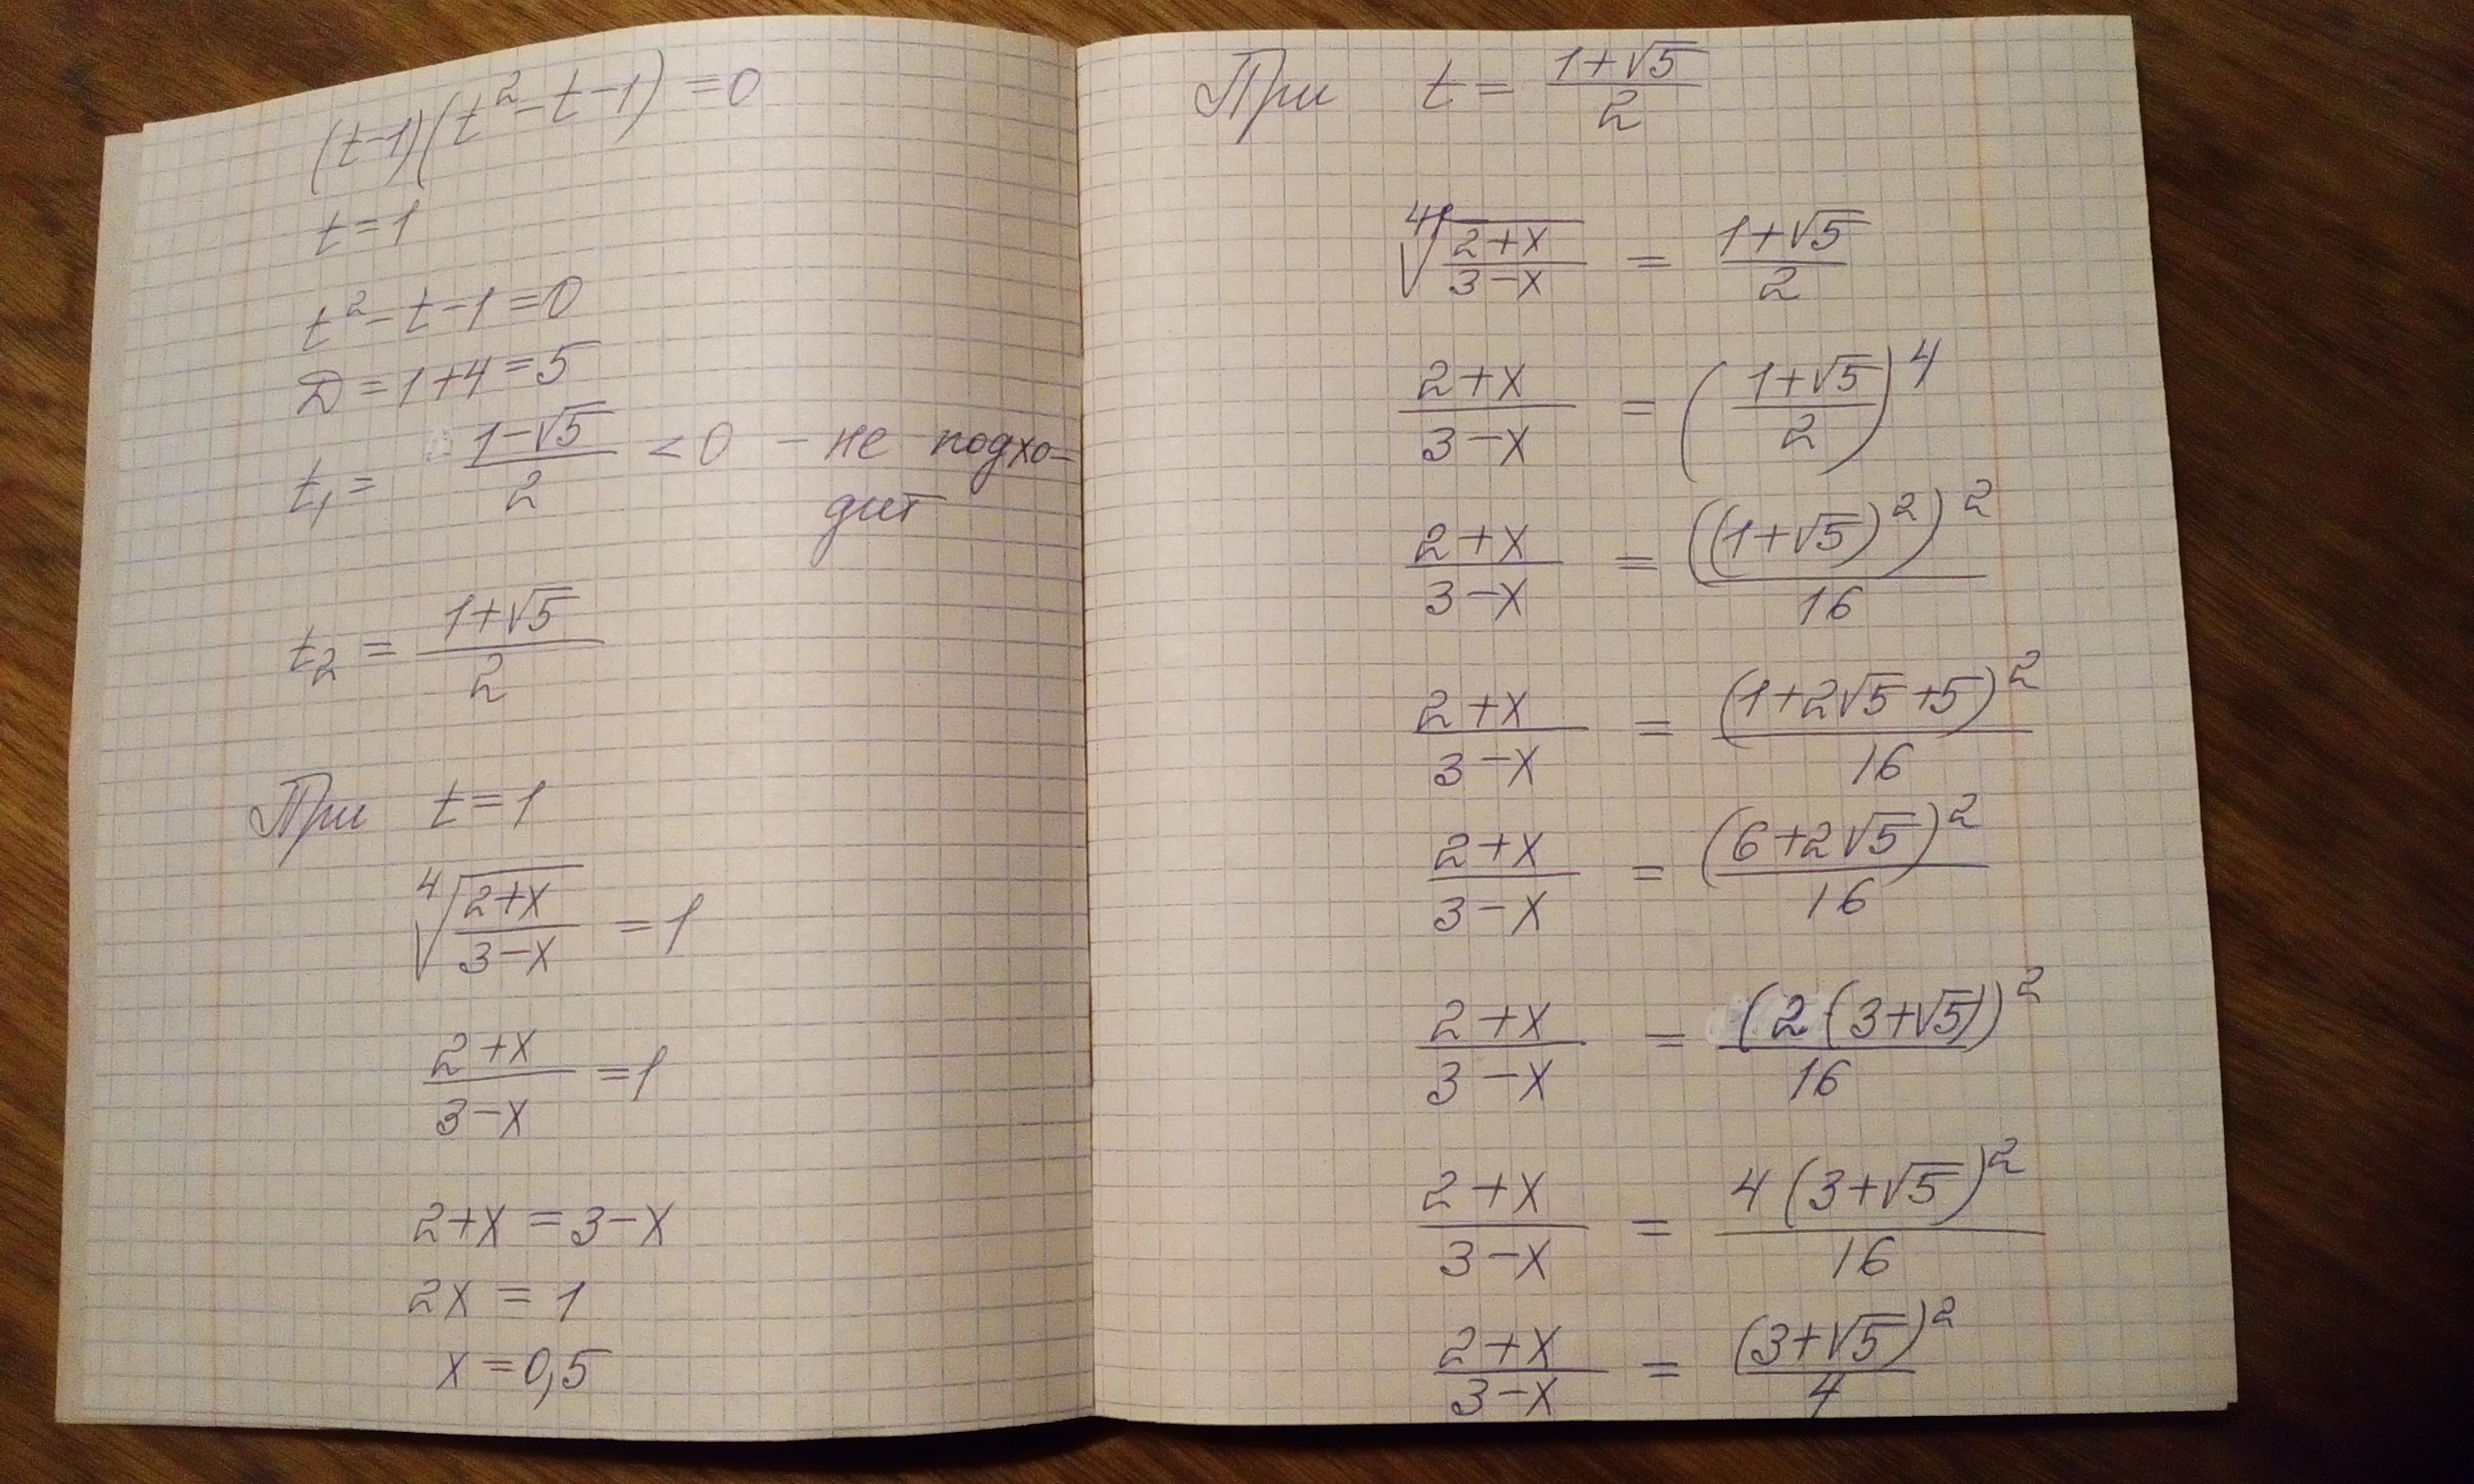 (t-1)(t²-t-1)=0
t=1
t²-t-1=0
D=1+4=5
t₁= (1-√5)/2 <0 - не подхо-
дит
t₂ = (1+√5)/2
При t=1
⁴√((2+x)/(3-x)) =1
(2+x)/(3-x) =1
2+x=3-x
2x=1
x=0,5
При t= (1+√5)/2
⁴√((2+x)/(3-x)) = (1+√5)/2
(2+x)/(3-x) = ((1+√5)/2)⁴
(2+x)/(3-x) = ((1+√5)²)²/16
(2+x)/(3-x) = (1+2√5+5)²/16
(2+x)/(3-x) = (6+2√5)²/16
(2+x)/(3-x) = (2(3+√5))²/16
(2+x)/(3-x) = 4(3+√5)²/16
(2+x)/(3-x) = (3+√5)²/4